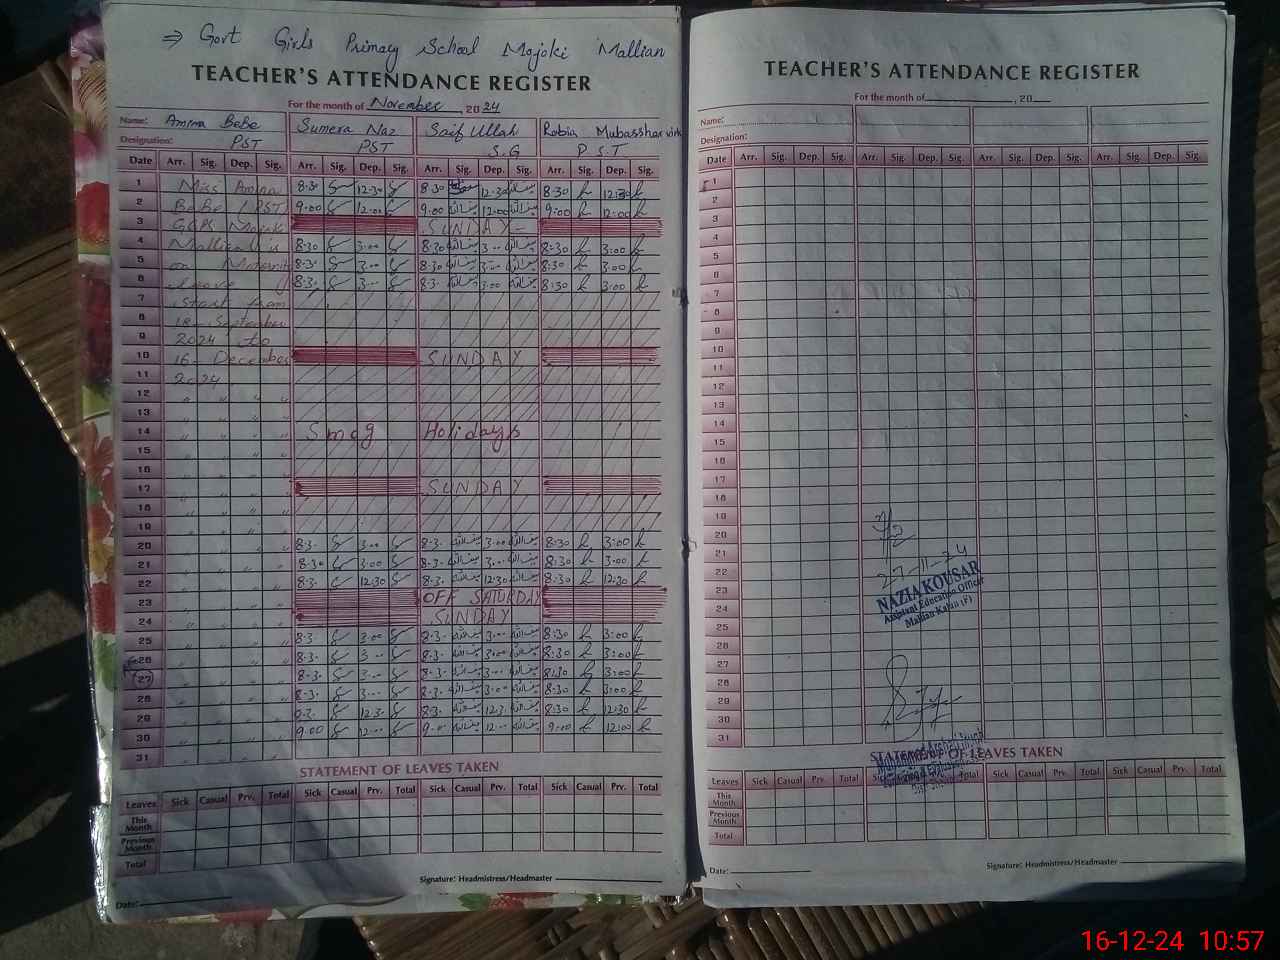 ⇒ Govt Girls Primary School Mojoki Mallian
TEACHER'S ATTENDANCE REGISTER
For the month of November, 2024
Name: Amina BeBe Sumera Naz Saif Ullah Robia Mubasshar virk
Designation: PST PST S.G P.S.T
Date Arr. Sig. Dep. Sig. Arr. Sig. Dep. Sig. Arr. Sig. Dep. Sig. Arr. Sig. Dep. Sig.
1 Miss Amina 8.30 12.30 8.30 12.30 8.30 12:30
2 BeBe (PST) 9.00 12.00 9.00 12.00 9:00 12:00
3 SUNDAY
4 Mallian is 8.30 3.00 8.30 3.00 8:30 3:00
5 on Maternity 8.3. 3.00 8.30 3.00 8:30 3:00
6 leave 8.3. 3.00 8.3. 3.00 8:30 3:00
7 start from
8 18 September
9 2024 to
10 16 December SUNDAY
11 2024
12
13
14 Smog Holidays
15
16
17 SUNDAY
18
19
20 8.3. 3.00 8.3. 3.00 8:30 3:00
21 8.30 3.00 8.3. 3.00 8:30 3:00
22 8.3. 12.30 8.3. 12.30 8:30 12:30
23 OFF SATURDAY
24 SUNDAY
25 8.3. 3.00 8.3. 3.00 8:30 3:00
26 8.3. 3.00 8.3. 3.00 8:30 3:00
27 8.3. 3.00 8.3. 3.00 8:30 3:00
28 8.3. 3.00 8.3. 3.00 8:30 3:00
29 8.3. 12.3. 8.3. 12.3. 8:30 12:30
30 9.00 12.00 9.00 12.00 9:00 12:00
31
STATEMENT OF LEAVES TAKEN
Leaves Sick Casual Prv. Total Sick Casual Prv. Total Sick Casual Prv. Total Sick Casual Prv. Total
This Month
Previous Month
Total
Signature: Headmistress/Headmaster
Date:
TEACHER'S ATTENDANCE REGISTER
For the month of , 20
Name:
Designation:
Date Arr. Sig. Dep. Sig. Arr. Sig. Dep. Sig. Arr. Sig. Dep. Sig. Arr. Sig. Dep. Sig.
1
2
3
4
5
6
7
8
9
10
11
12
13
14
15
16
17
18
19
20
21
22
23
24
25
26
27
28
29
30
31
27-11-24
NAZIA KOUSAR
Assistant Education Officer
Mallian Kalan (F)
STATEMENT OF LEAVES TAKEN
Leaves Sick Casual Prv. Total Sick Casual Prv. Total Sick Casual Prv. Total Sick Casual Prv. Total
This Month
Previous Month
Total
Signature: Headmistress/Headmaster
Date:
16-12-24 10:57